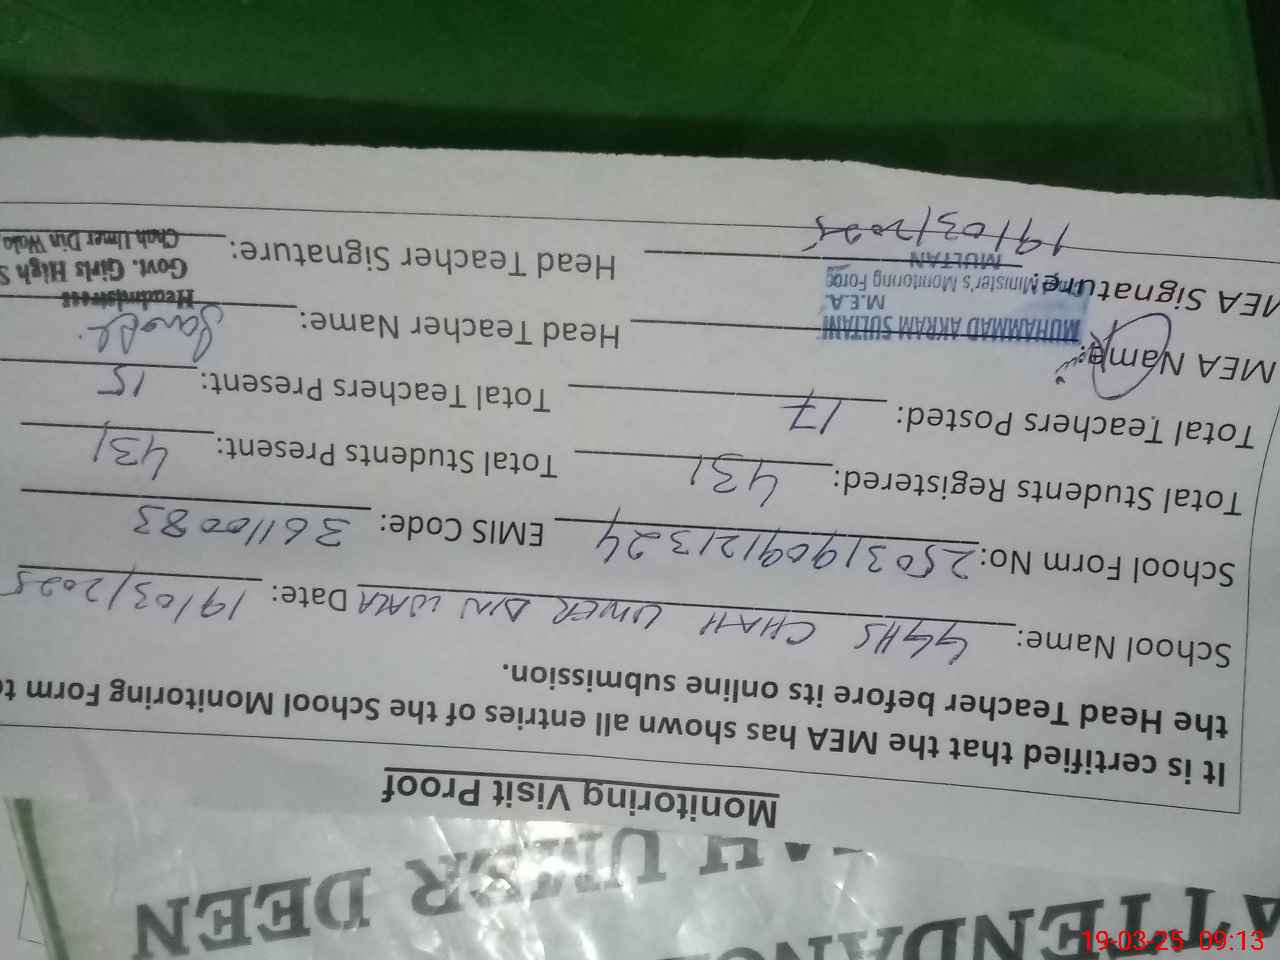 ATTENDANC
AH UMER DEEN
Monitoring Visit Proof
It is certified that the MEA has shown all entries of the School Monitoring Form to
the Head Teacher before its online submission.
School Name: GGHS CHAH UMER DIN WALA Date: 19/03/2025
School Form No: 25031909121324 EMIS Code: 36110083
Total Students Registered: 431 Total Students Present: 431
Total Teachers Posted: 17 Total Teachers Present: 15
MEA Name: MUHAMMAD AKRAM SULTANI Head Teacher Name:
M.E.A.
Minister's Monitoring Force
MULTAN
MEA Signature: 19/03/2025 Head Teacher Signature:
Headmistress
Govt. Girls High S
Chah Umer Din Wala
19-03-25 09:13